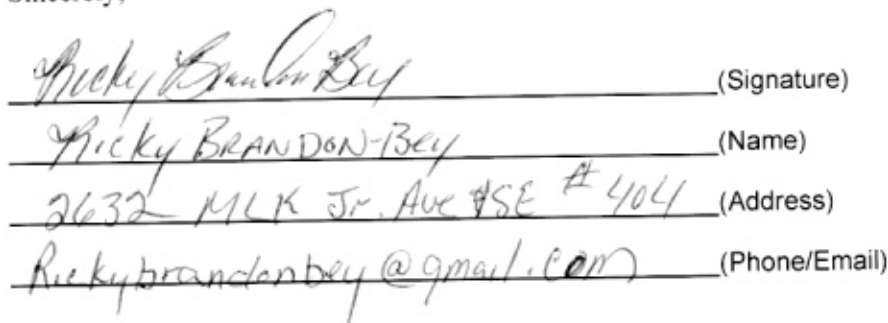 Sincerely,
Ricky Brandon Bey (Signature)
Ricky BRANDON-Bey (Name)
2632 MLK Jr. Ave SE # 404 (Address)
Rickybrandonbey@gmail.com (Phone/Email)